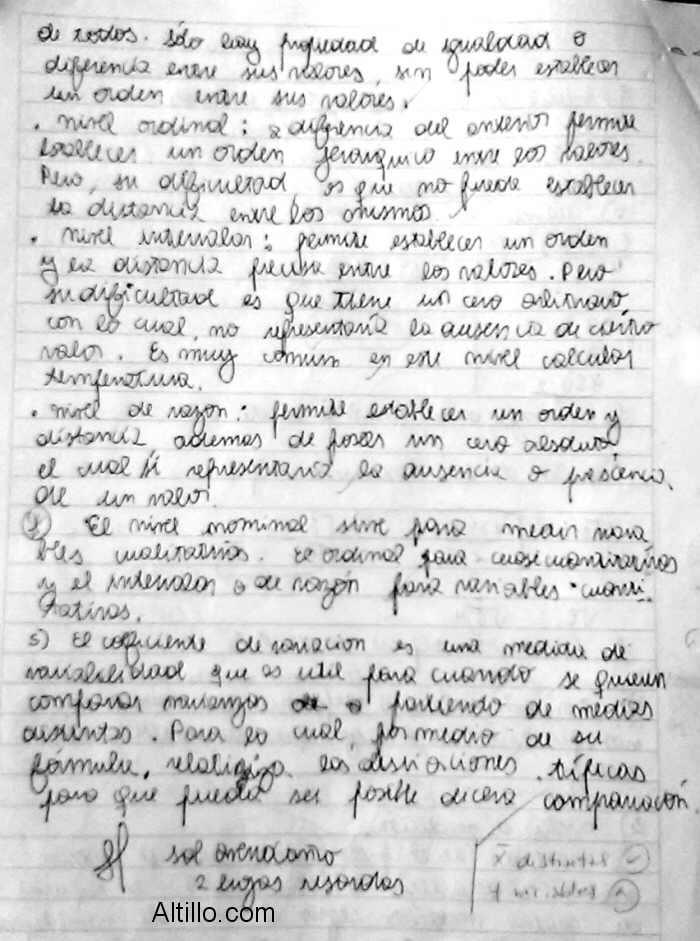 de todos. Sólo hay propiedad de igualdad o
diferencia entre sus valores, sin poder establecer
un orden entre sus valores.
. nivel ordinal: a diferencia del anterior permite
establecer un orden jerarquico entre los valores.
Pero, su dificultad, es que no puede establecer
la distancia entre los mismos.
. nivel intervalar: permite establecer un orden
y la distancia precisa entre los valores. Pero
su dificultad es que tiene un cero arbitrario,
con lo cual, no representaría la ausencia de cierto
valor. Es muy común en este nivel calcular
temperatura.
. nivel de razon: permite establecer un orden y
distancia ademas de poseer un cero absoluto
el cual si representaria la ausencia o presencia
de un valor.
El nivel nominal sirve para medir varia
bles cualitativas. El ordinal para cuasicuantitativas
y el intervalar o de razón para variables cuanti
tativas.
5) El coeficiente de variacion es una medida de
variabilidad que es util para cuando se quieren
comparar varianzas o partiendo de medias
distintas. Para lo cual, por medio de su
fórmula, relativiza las desviaciones típicas
para que pueda ser posible dicha comparación.
sol avendaño
2 hojas
X distintas
Altillo.com